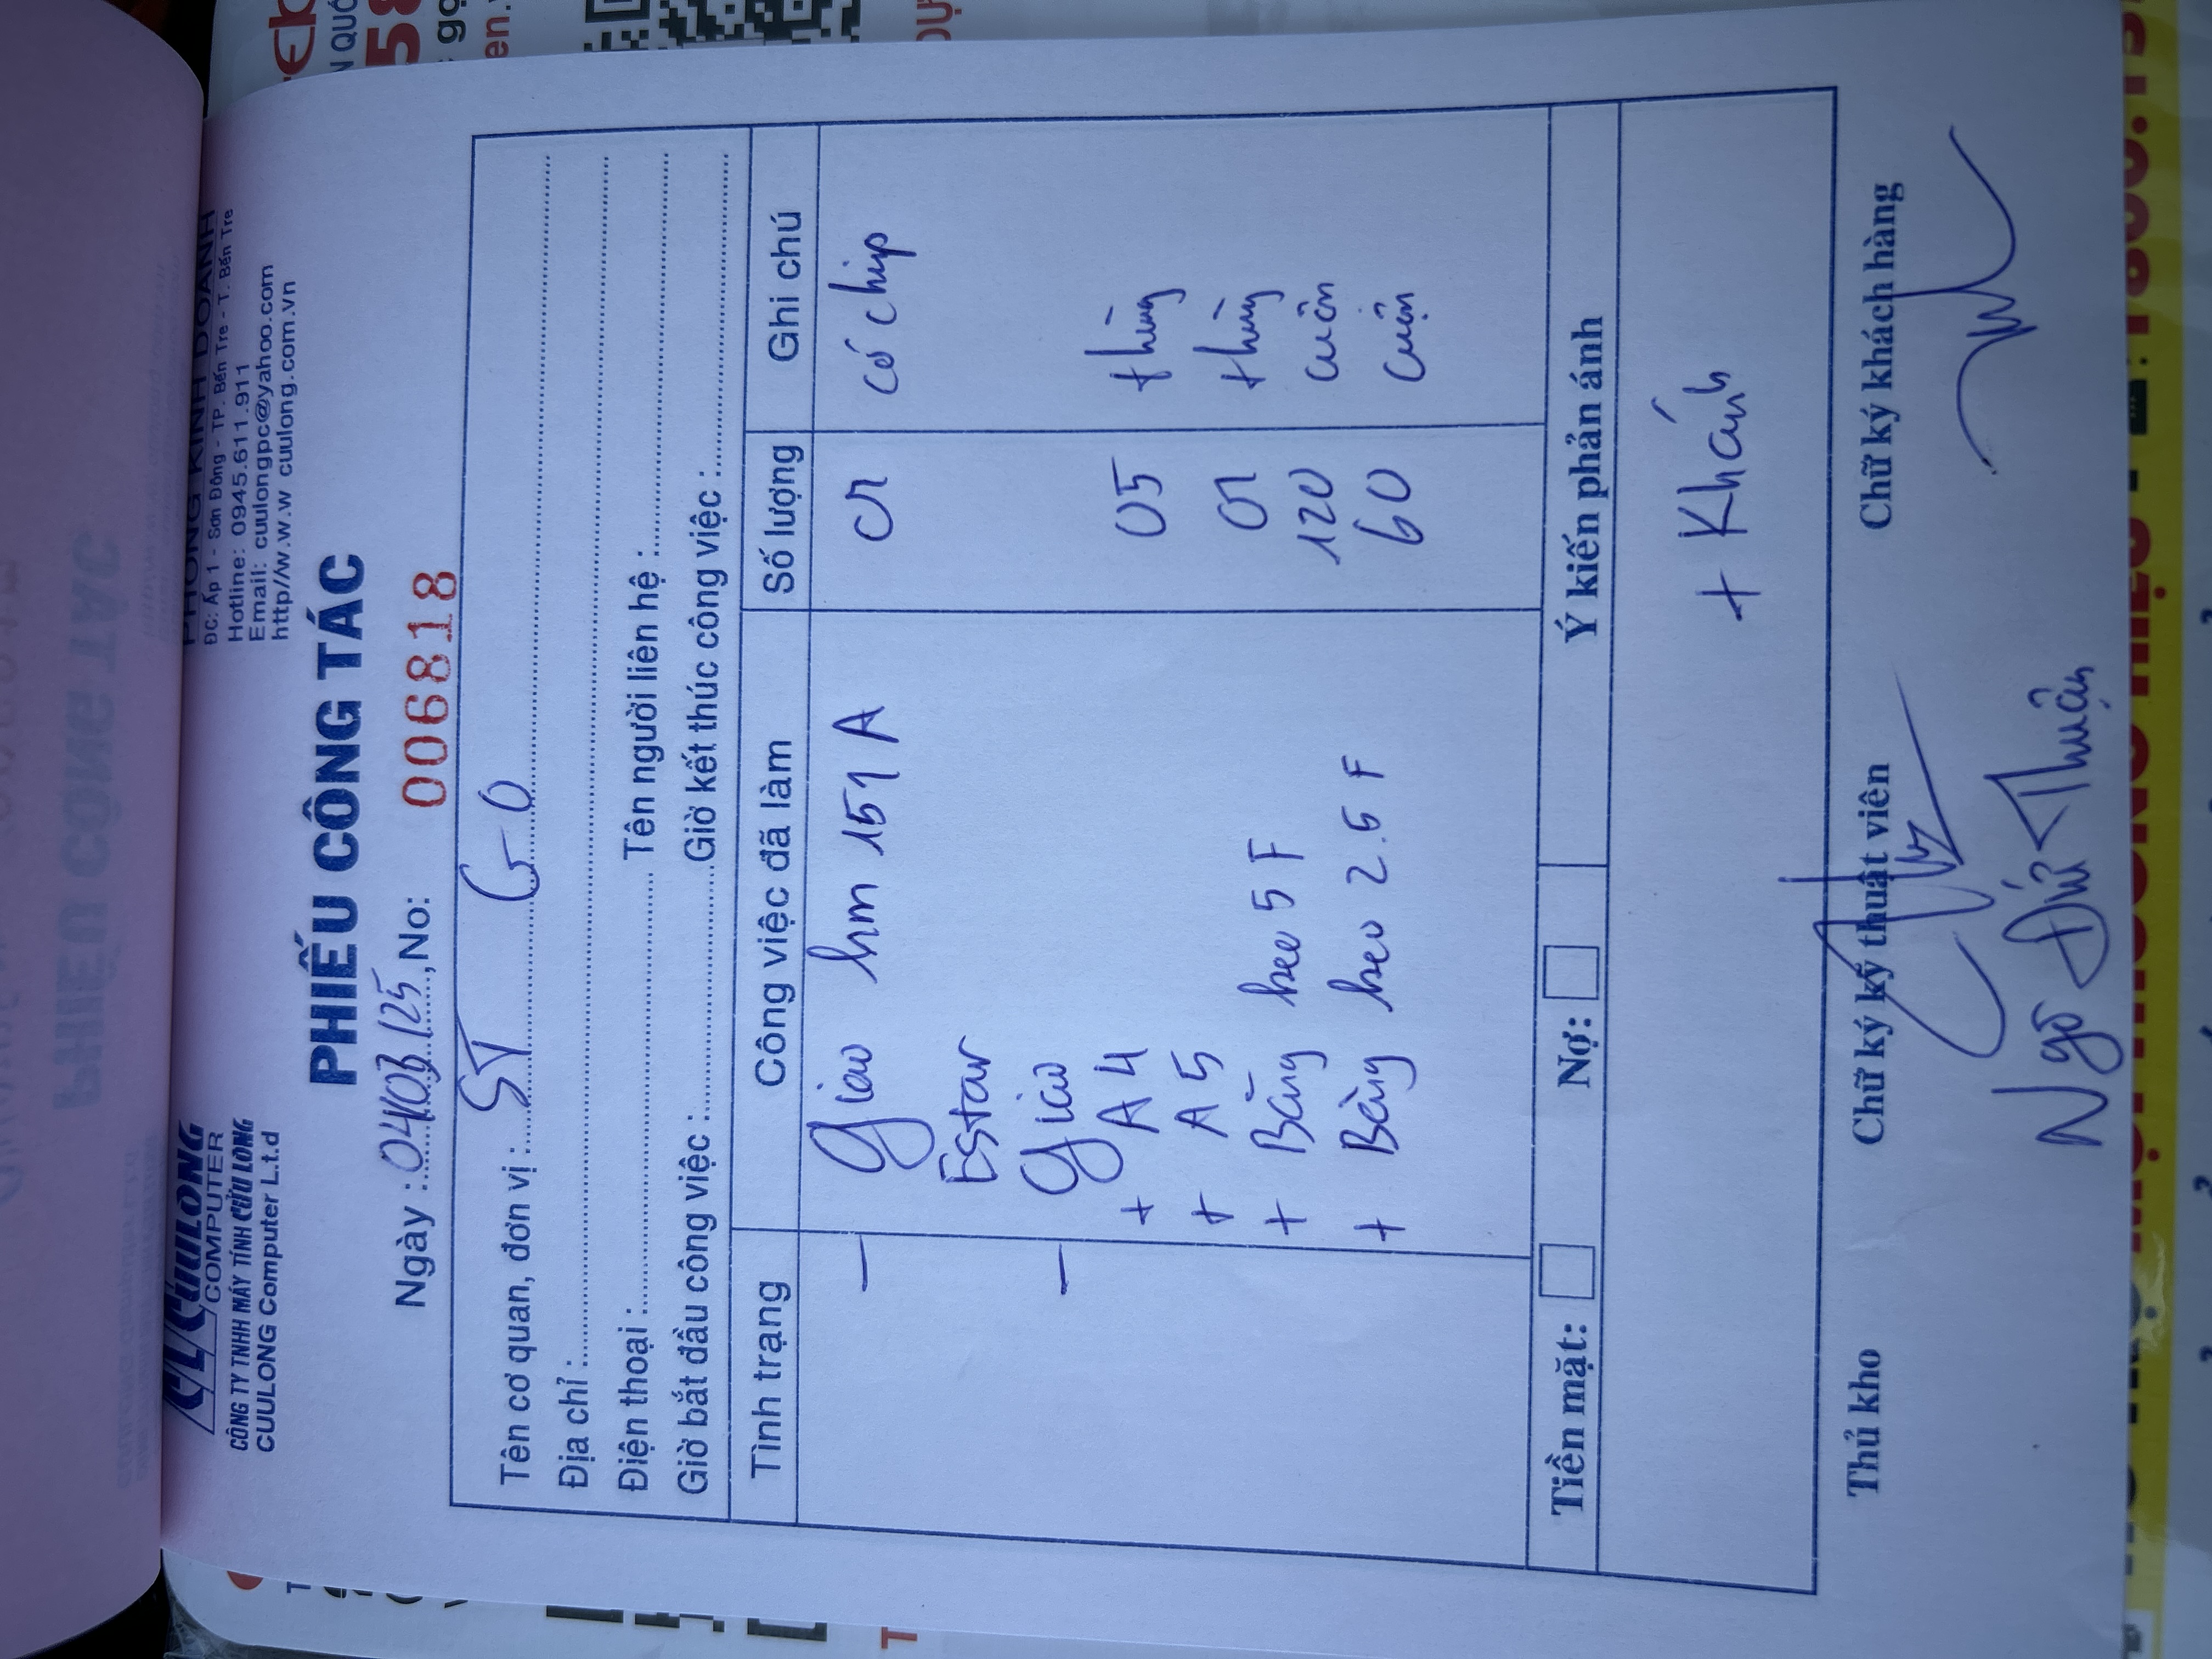 CL CUULONG
COMPUTER
CÔNG TY TNHH MÁY TÍNH CỬU LONG
CUULONG Computer L.t.d
PHÒNG KINH DOANH
ĐC: Ấp 1 - Sơn Đông - TP. Bến Tre - T. Bến Tre
Hotline: 0945.611.911
Email: cuulongpc@yahoo.com
http//w.w.w cuulong.com.vn
PHIẾU CÔNG TÁC
Ngày : 04/03/25, No: 006818
Tên cơ quan, đơn vị : ST GO
Địa chỉ :
Điện thoại : Tên người liên hệ :
Giờ bắt đầu công việc : Giờ kết thúc công việc :
Tình trạng Công việc đã làm Số lượng Ghi chú
- Giao hm 151 A 01 có chip
Estar
- Giao
+ A4 05 thùng
+ A5 01 thùng
+ Băng keo 5 F 120 cuộn
+ Băng keo 2.5 F 60 cuộn
Tiền mặt: Nợ: Ý kiến phản ánh
+ Khánh
Thủ kho Chữ ký kỹ thuật viên Chữ ký khách hàng
Ngô Đức Thuận